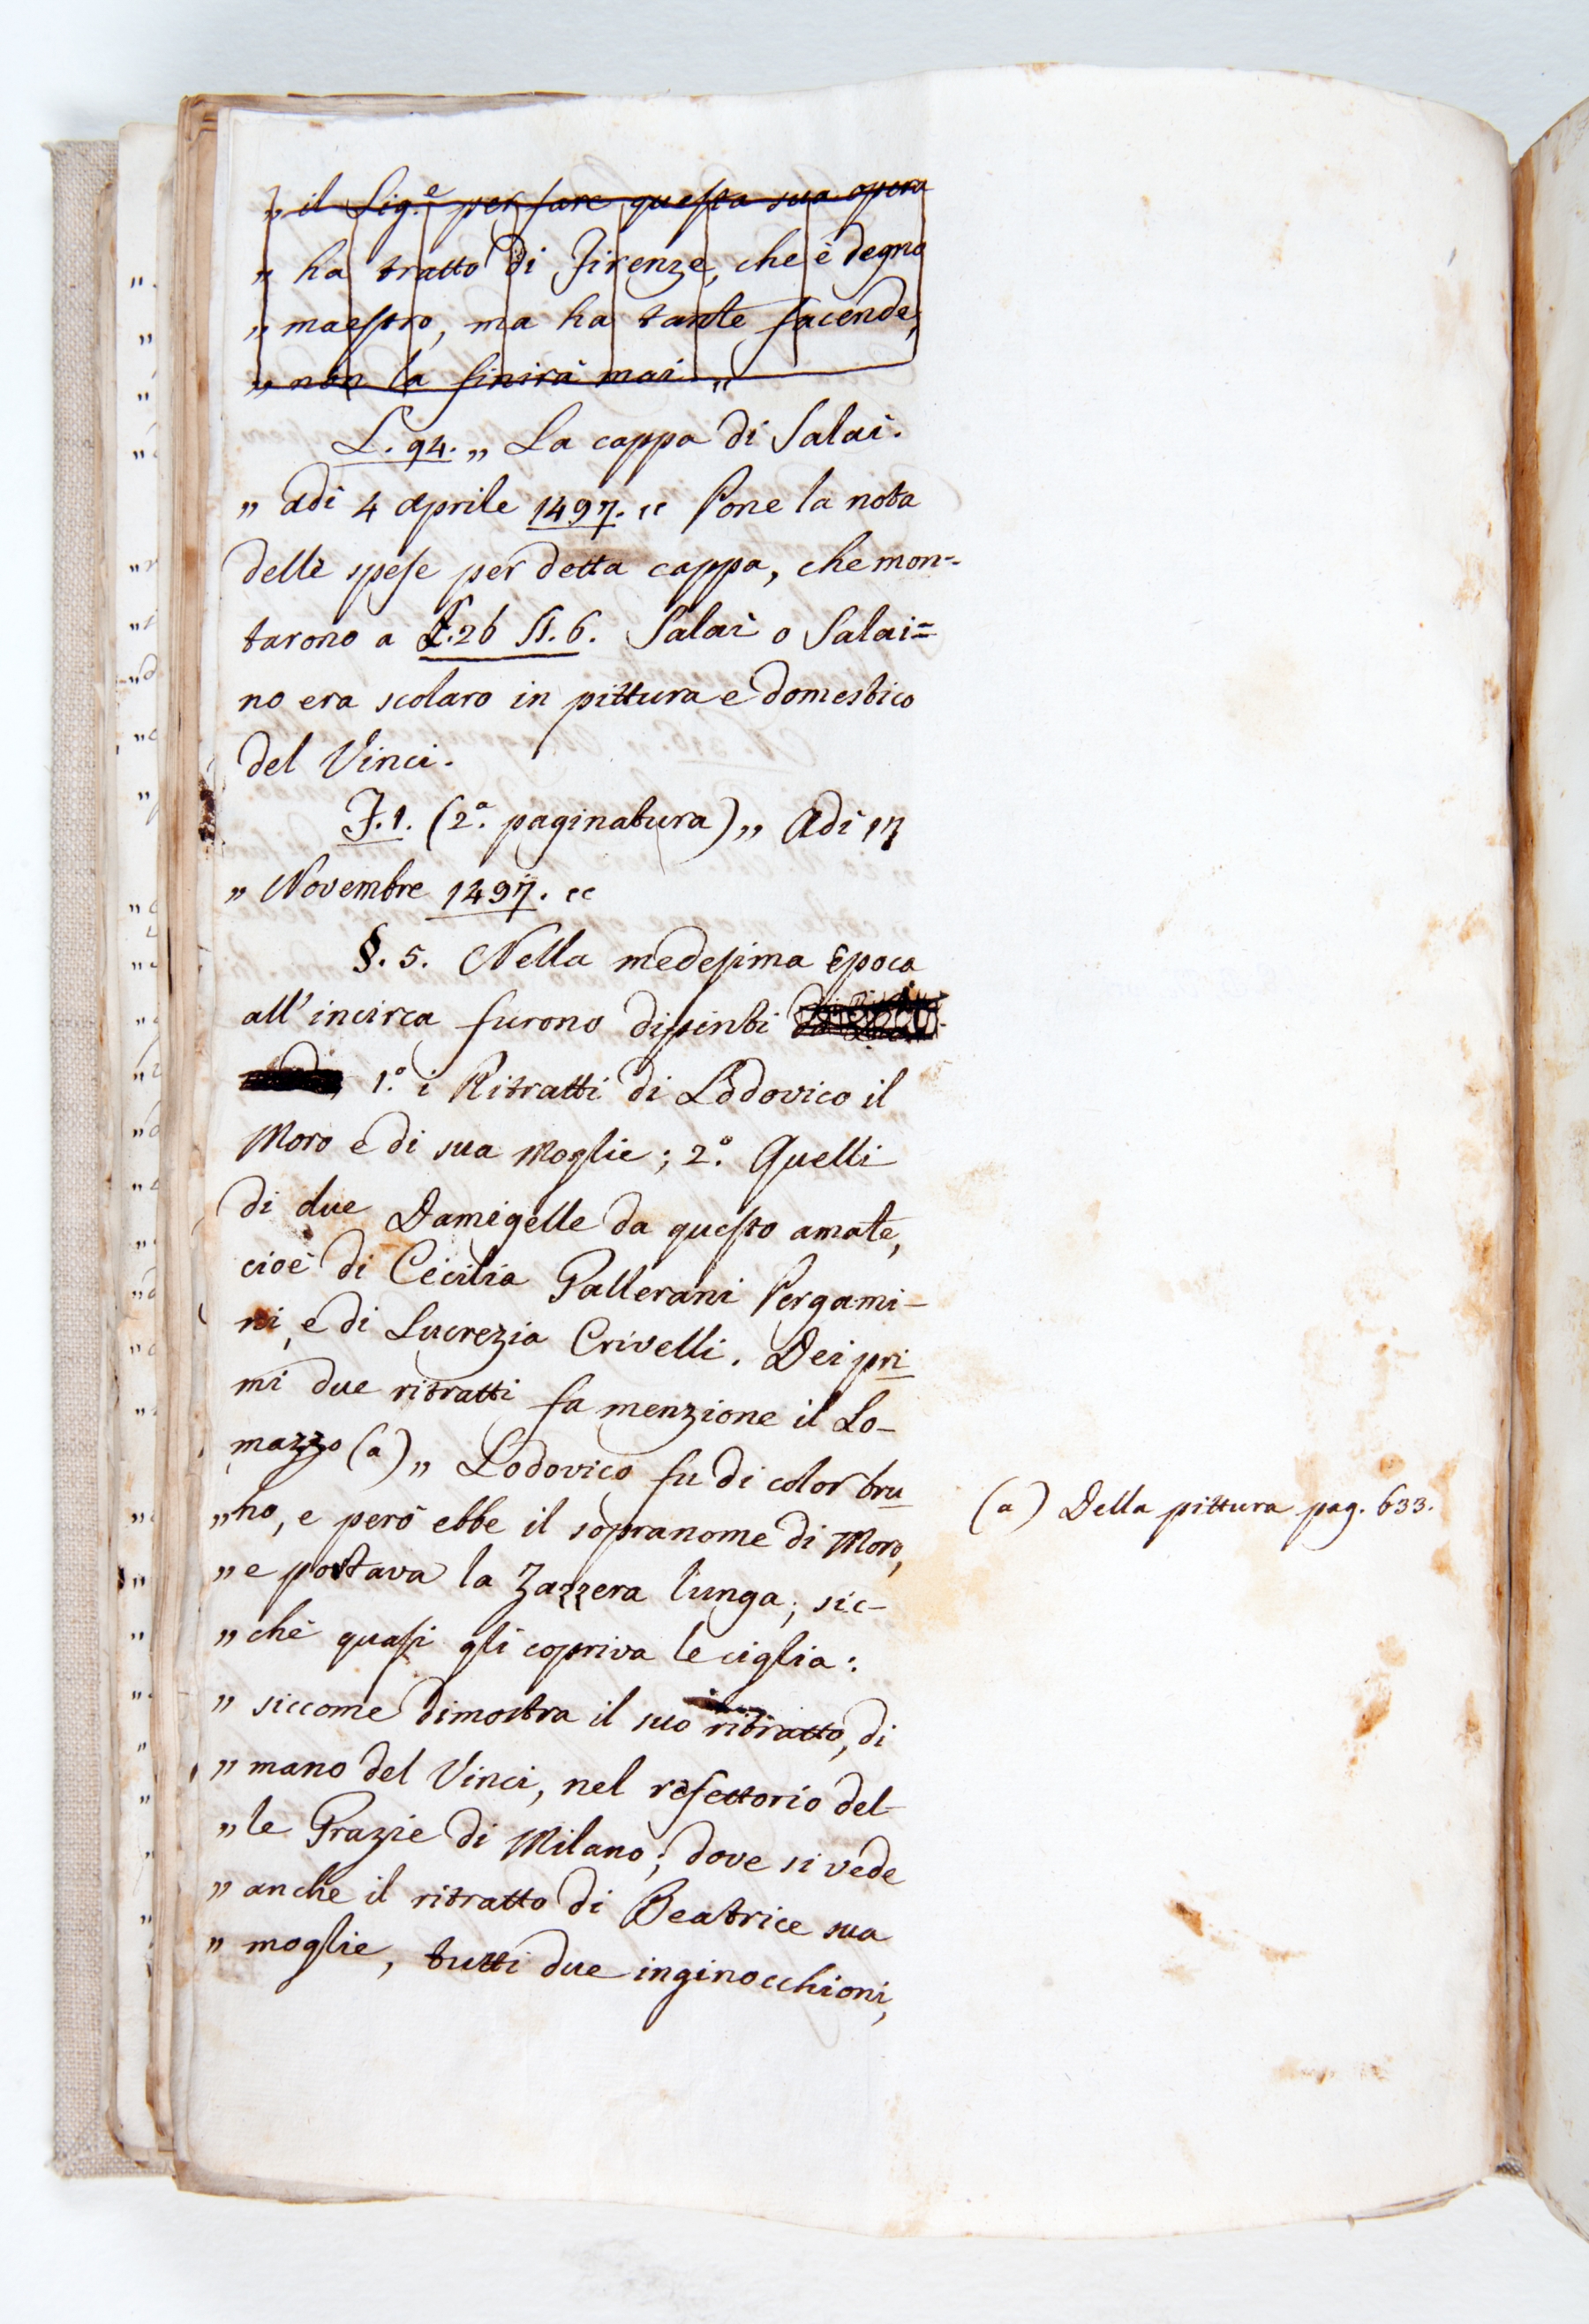 „ il Sig.e per fare questa sua opera
„ ha tratto di Firenze, che è degno
„ maestro, ma ha tante facende,
„ non la finirà mai „
L. 94. „ La cappa di Salai.
„ adi 4 Aprile 1497. „ Pone la nota
delle spese per detta cappa, che mon-
tarono a L. 26 S. 6. Salai o Salai=
no era scolaro in pittura e domestico
del Vinci.
I. 1. (2.a paginatura) „ Adi 17
„ Novembre 1497. „
§. 5. Nella medesima Epoca
all' incirca furono dipinti
1.° i Ritratti di Lodovico il
Moro e di sua Moglie; 2.° Quelli
di due Damigelle da questo amate,
cioè di Cecilia Gallerani Pergami-
ni, e di Lucrezia Crivelli. Dei pri
mi due ritratti fa menzione il Lo-
mazzo (a) „ Lodovico fu di color bru
„ no, e però ebbe il sopranome di Moro,
„ e portava la Zazzera lunga; sic-
„ chè quasi gli copriva le ciglia:
„ siccome dimostra il suo ritratto, di
„ mano del Vinci, nel refettorio del-
„ le Grazie di Milano; dove si vede
„ anche il ritratto di Beatrice sua
„ moglie, tutti due inginocchioni,
(a) Della pittura pag. 633.